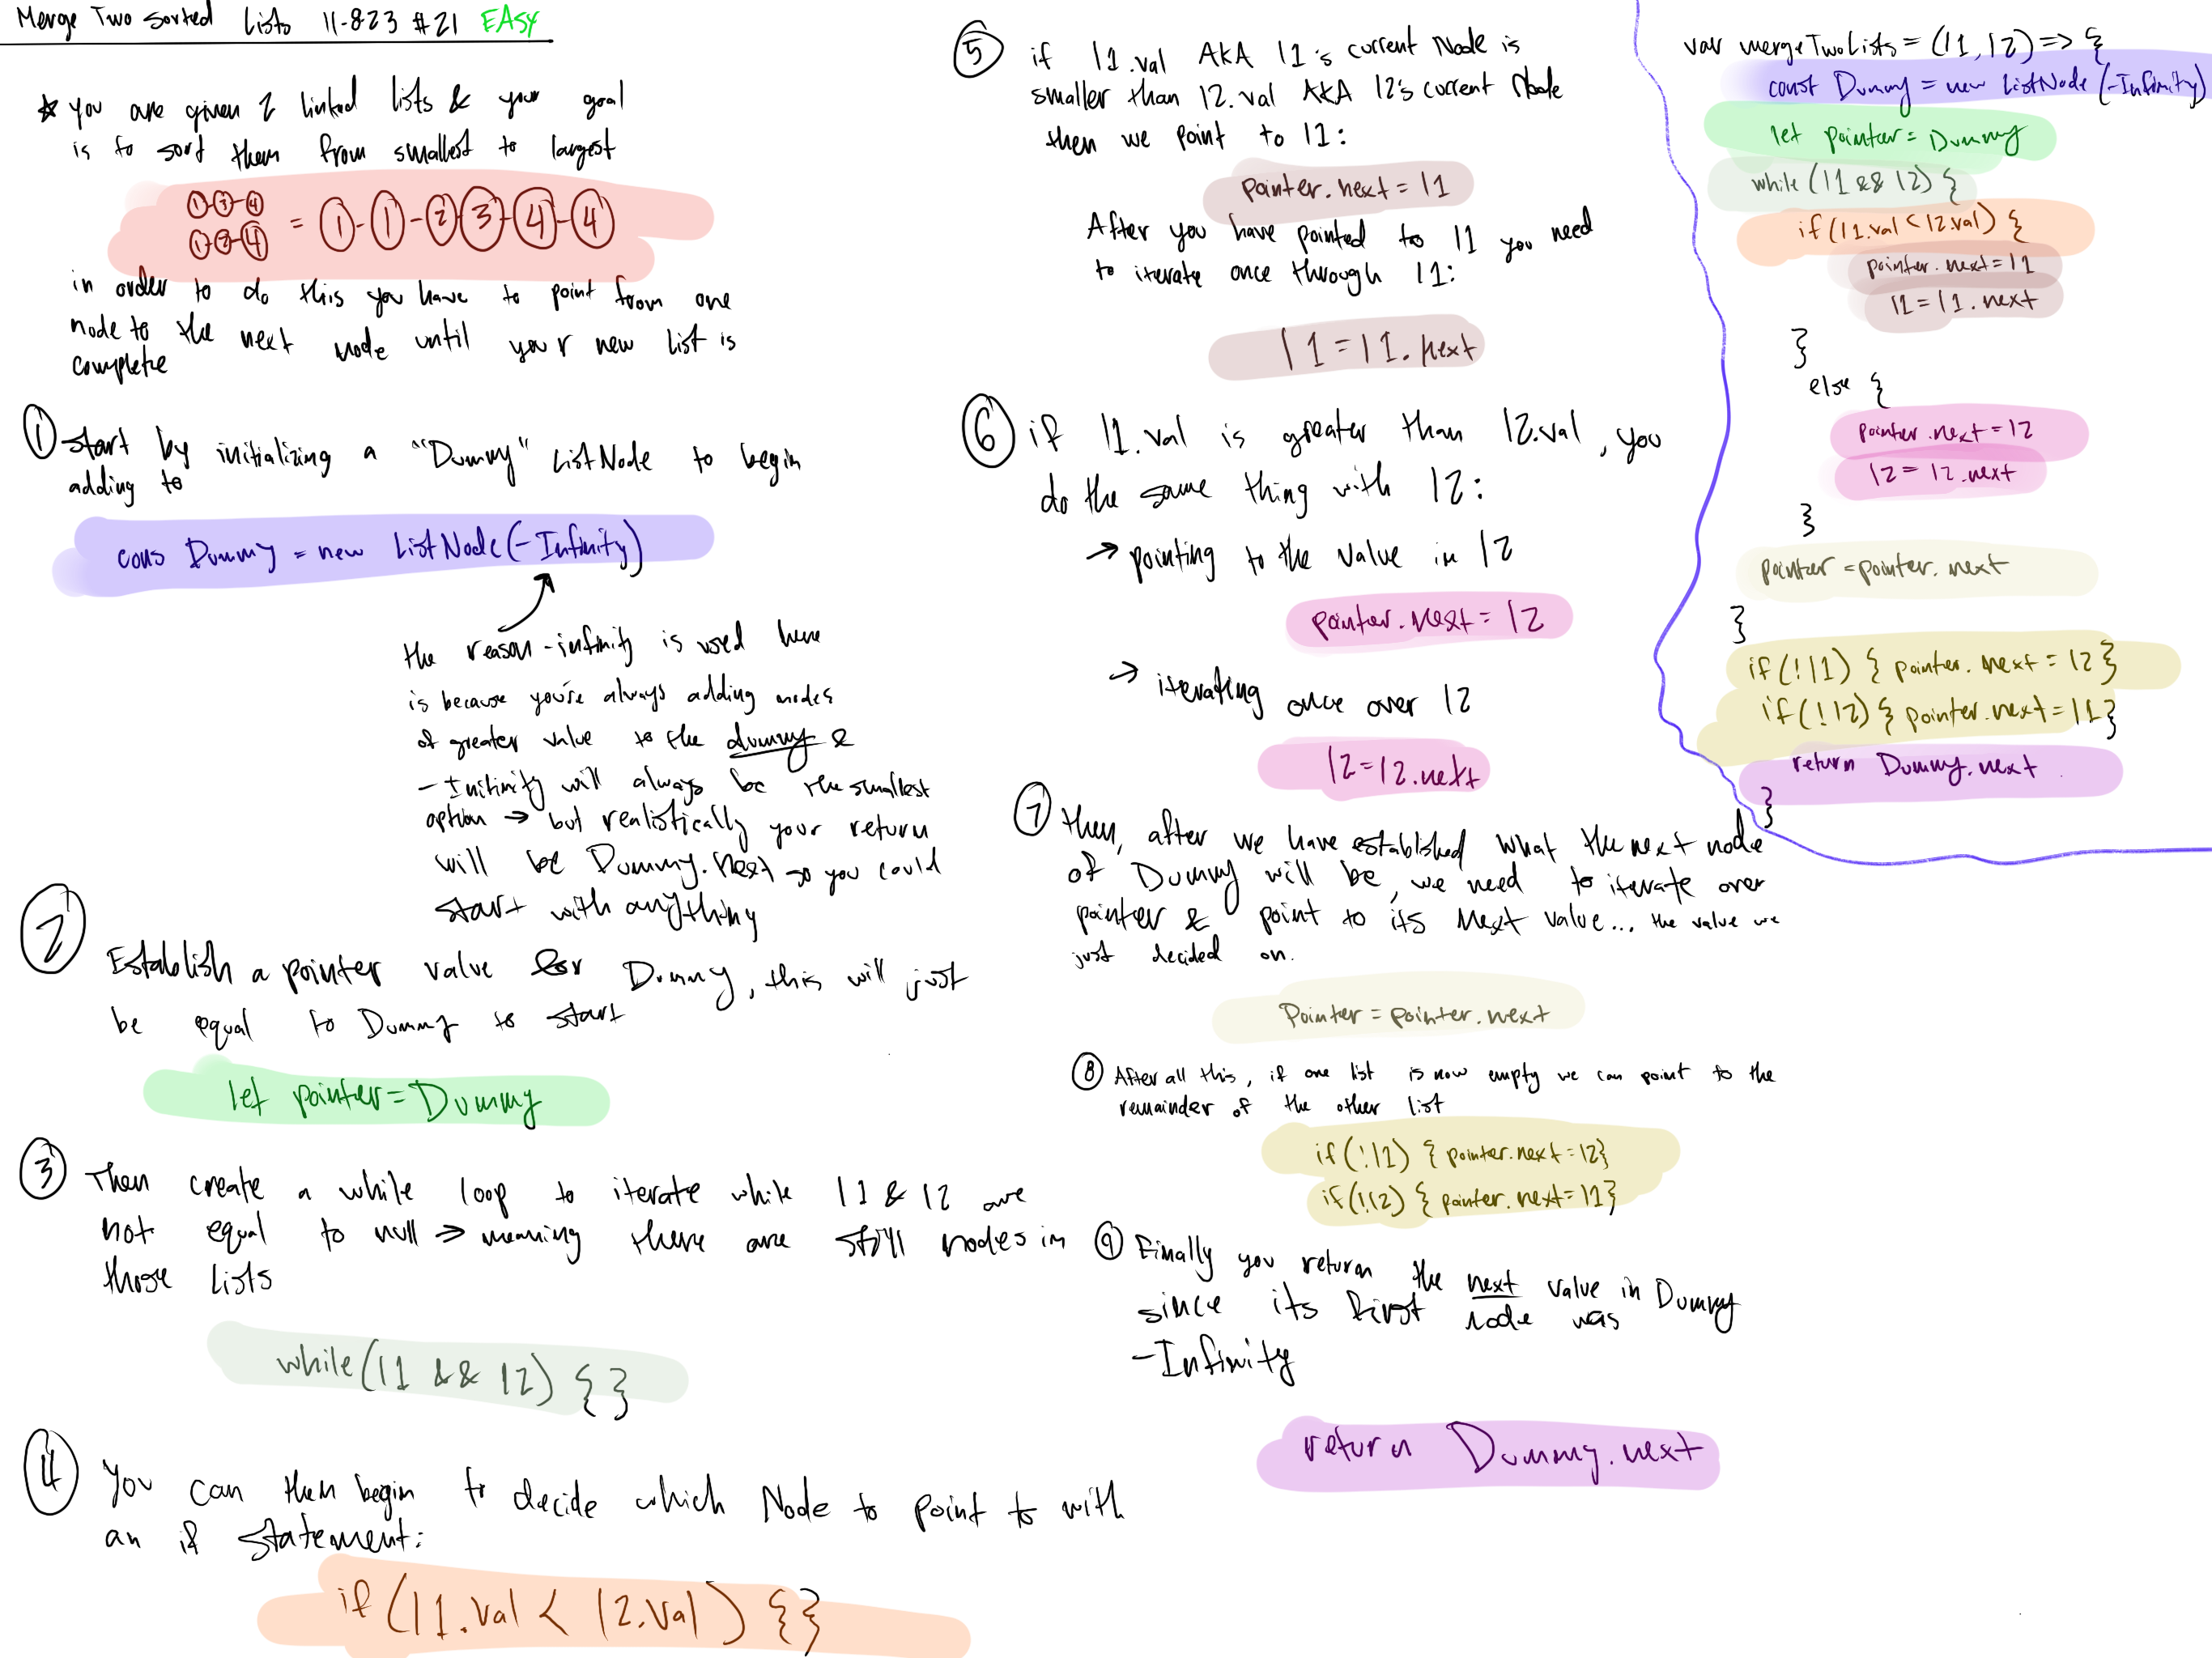 Merge Two Sorted Lists 11-8-23 #21 EASY
☆ you are given 2 linked lists & your goal
is to sort them from smallest to largest
1-3-4
1-2-4 = 1-1-2-3-4-4
in order to do this you have to point from one
node to the next node until your new list is
complete
① start by initializing a "Dummy" ListNode to begin
adding to
cons Dummy = new ListNode(-Infinity)
the reason -infinity is used here
is because you're always adding nodes
of greater value to the dummy &
-Initinity will always be the smallest
option → but realistically your return
will be Dummy.next so you could
start with anything
② Establish a pointer value for Dummy, this will just
be equal to Dummy to start
let pointer = Dummy
③ Then create a while loop to iterate while l1 & l2 are
not equal to null → meaning there are still nodes in
those lists
while(l1 && l2) { }
④ You can then begin to decide which Node to point to with
an if statement:
if (l1.val < l2.val) {}
⑤ if l1.val AKA l1's current Node is
smaller than l2.val AKA l2's current Node
then we point to l1:
pointer.next = l1
After you have pointed to l1 you need
to iterate once through l1:
l1 = l1.next
⑥ if l1.val is greater than l2.val, you
do the same thing with l2:
→ pointing to the value in l2
pointer.next = l2
→ iterating once over l2
l2 = l2.next
⑦ then, after we have established what the next node
of Dummy will be, we need to iterate over
pointer & point to its next value... the value we
just decided on.
Pointer = pointer.next
⑧ After all this, if one list is now empty we can point to the
remainder of the other list
if(!l1) { pointer.next = l2}
if(!l2) { pointer.next = l1}
⑨ Finally you return the next value in Dummy
since its first node was
-Infinity
return Dummy.next
var mergeTwoLists = (l1, l2) => {
const Dummy = new ListNode(-Infinity)
let pointer = Dummy
while (l1 && l2) {
if (l1.val < l2.val) {
pointer.next = l1
l1 = l1.next
}
else {
pointer.next = l2
l2 = l2.next
}
pointer = pointer.next
}
if(!l1) { pointer.next = l2}
if(!l2) { pointer.next = l1}
return Dummy.next
}